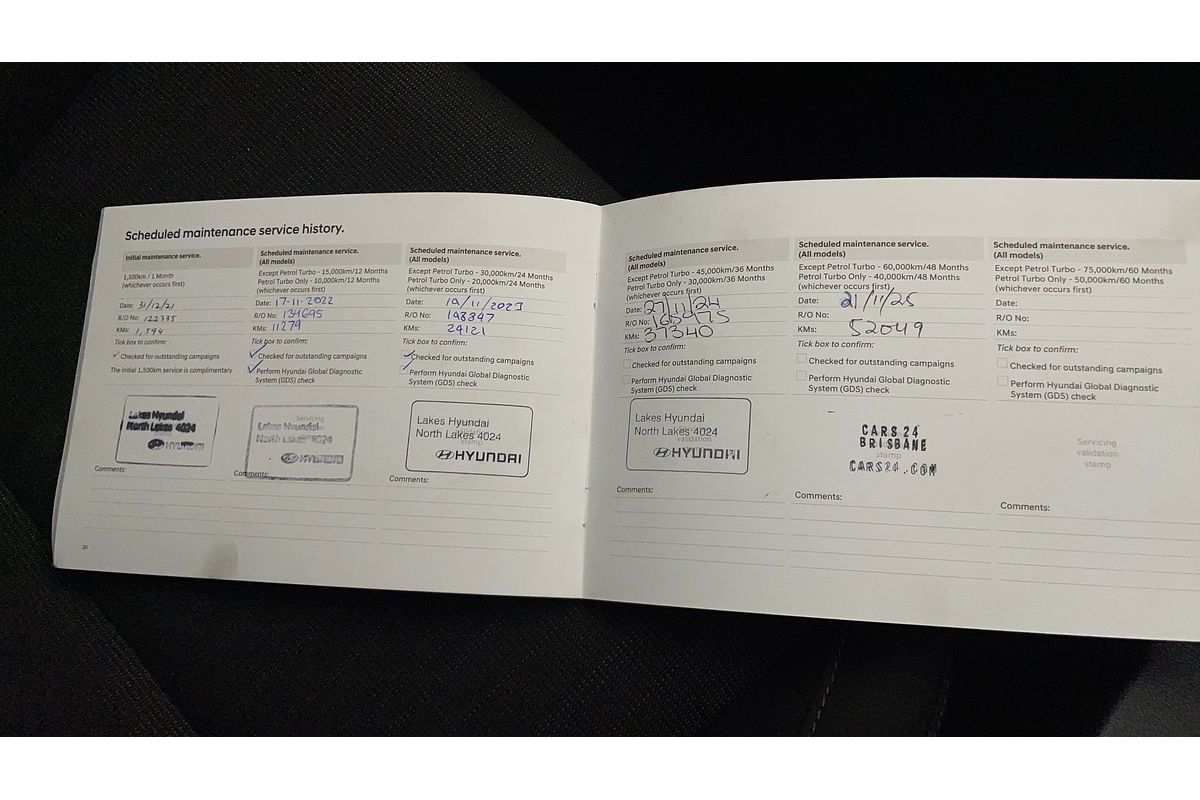 Scheduled maintenance service history.
Initial maintenance service.
1,500km / 1 Month
(whichever occurs first)
Date: 31/12/21
R/O No: 122335
KMs: 1,594
Tick box to confirm:
Checked for outstanding campaigns
The initial 1,500km service is complimentary
Lakes Hyundai
North Lakes 4024
HYUNDAI
Comments:
20
Scheduled maintenance service.
(All models)
Except Petrol Turbo - 15,000km/12 Months
Petrol Turbo Only - 10,000km/12 Months
(whichever occurs first)
Date: 17-11-2022
R/O No: 134695
KMs: 11279
Tick box to confirm:
Checked for outstanding campaigns
Perform Hyundai Global Diagnostic
System (GDS) check
Servicing
Lakes Hyundai
North Lakes 4024
HYUNDAI
Comments:
Scheduled maintenance service.
(All models)
Except Petrol Turbo - 30,000km/24 Months
Petrol Turbo Only - 20,000km/24 Months
(whichever occurs first)
Date: 10/11/2023
R/O No:
KMs: 24121
Tick box to confirm:
Checked for outstanding campaigns
Perform Hyundai Global Diagnostic
System (GDS) check
Lakes Hyundai
North Lakes 4024
stamp
HYUNDAI
Comments:
Scheduled maintenance service.
(All models)
Except Petrol Turbo - 45,000km/36 Months
Petrol Turbo Only - 30,000km/36 Months
(whichever occurs first)
Date: 27/11/24
R/O No: 165975
KMs: 37340
Tick box to confirm:
Checked for outstanding campaigns
Perform Hyundai Global Diagnostic
System (GDS) check
Lakes Hyundai
North Lakes 4024
validation
HYUNDAI
Comments:
Scheduled maintenance service.
(All models)
Except Petrol Turbo - 60,000km/48 Months
Petrol Turbo Only - 40,000km/48 Months
(whichever occurs first)
Date: 21/11/25
R/O No:
KMs: 52049
Tick box to confirm:
Checked for outstanding campaigns
Perform Hyundai Global Diagnostic
System (GDS) check
CARS24
BRISBANE
stamp
CARS24.COM
Comments:
Scheduled maintenance service.
(All models)
Except Petrol Turbo - 75,000km/60 Months
Petrol Turbo Only - 50,000km/60 Months
(whichever occurs first)
Date:
R/O No:
KMs:
Tick box to confirm:
Checked for outstanding campaigns
Perform Hyundai Global Diagnostic
System (GDS) check
Servicing
validation
stamp
Comments: